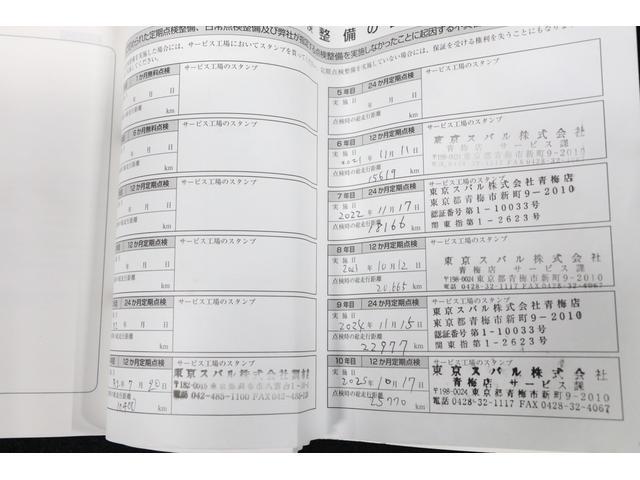 整備の
受けられた定期点検整備、日常点検整備及び弊社が指定する点検整備を実施しなかったことに起因する不具合
サービス工場においてスタンプを
1か月無料点検
サービス工場のスタンプ
年 月 日
km
6か月無料点検
サービス工場のスタンプ
年 月 日
km
12か月定期点検
サービス工場のスタンプ
年 月 日
km
12か月定期点検
サービス工場のスタンプ
年 月 日
km
24か月定期点検
サービス工場のスタンプ
年 月 日
km
12か月定期点検
サービス工場のスタンプ
7月
東京スバル株式会社
電話 042-485-1100
km
定期点検整備を実施していない場合には、保証を受ける権利を失うことにもなり
5年目 24か月定期点検
サービス工場のスタンプ
実施日 年 月 日
点検時の総走行距離 km
6年目 12か月定期点検
サービス工場のスタンプ
実施日
2021年11月11日
点検時の総走行距離
15619 km
東京スバル株式会社
青梅店 サービス課
〒198-0024 東京都青梅市新町9-2010
電話 0428-32-1117 FAX 0428-32-4067
7年目 24か月定期点検
サービス工場のスタンプ
実施日
2022年11月17日
点検時の総走行距離
18166 km
東京スバル株式会社青梅店
東京都青梅市新町9-2010
認証番号第1-10033号
関東指第1-2623号
8年目 12か月定期点検
サービス工場のスタンプ
実施日
2023年10月12日
点検時の総走行距離
20665 km
東京スバル株式会社
青梅店 サービス課
〒198-0024 東京都青梅市新町9-2010
電話 0428-32-1117 FAX 0428-32-4067
9年目 24か月定期点検
サービス工場のスタンプ
実施日
2024年11月15日
点検時の総走行距離
22977 km
東京スバル株式会社青梅店
東京都青梅市新町9-2010
認証番号第1-10033号
関東指第1-2623号
10年目 12か月定期点検
サービス工場のスタンプ
実施日
2025年10月17日
点検時の総走行距離
25770 km
東京スバル株式会社
青梅店 サービス課
〒198-0024 東京都青梅市新町9-2010
電話 0428-32-1117 FAX 0428-32-4067